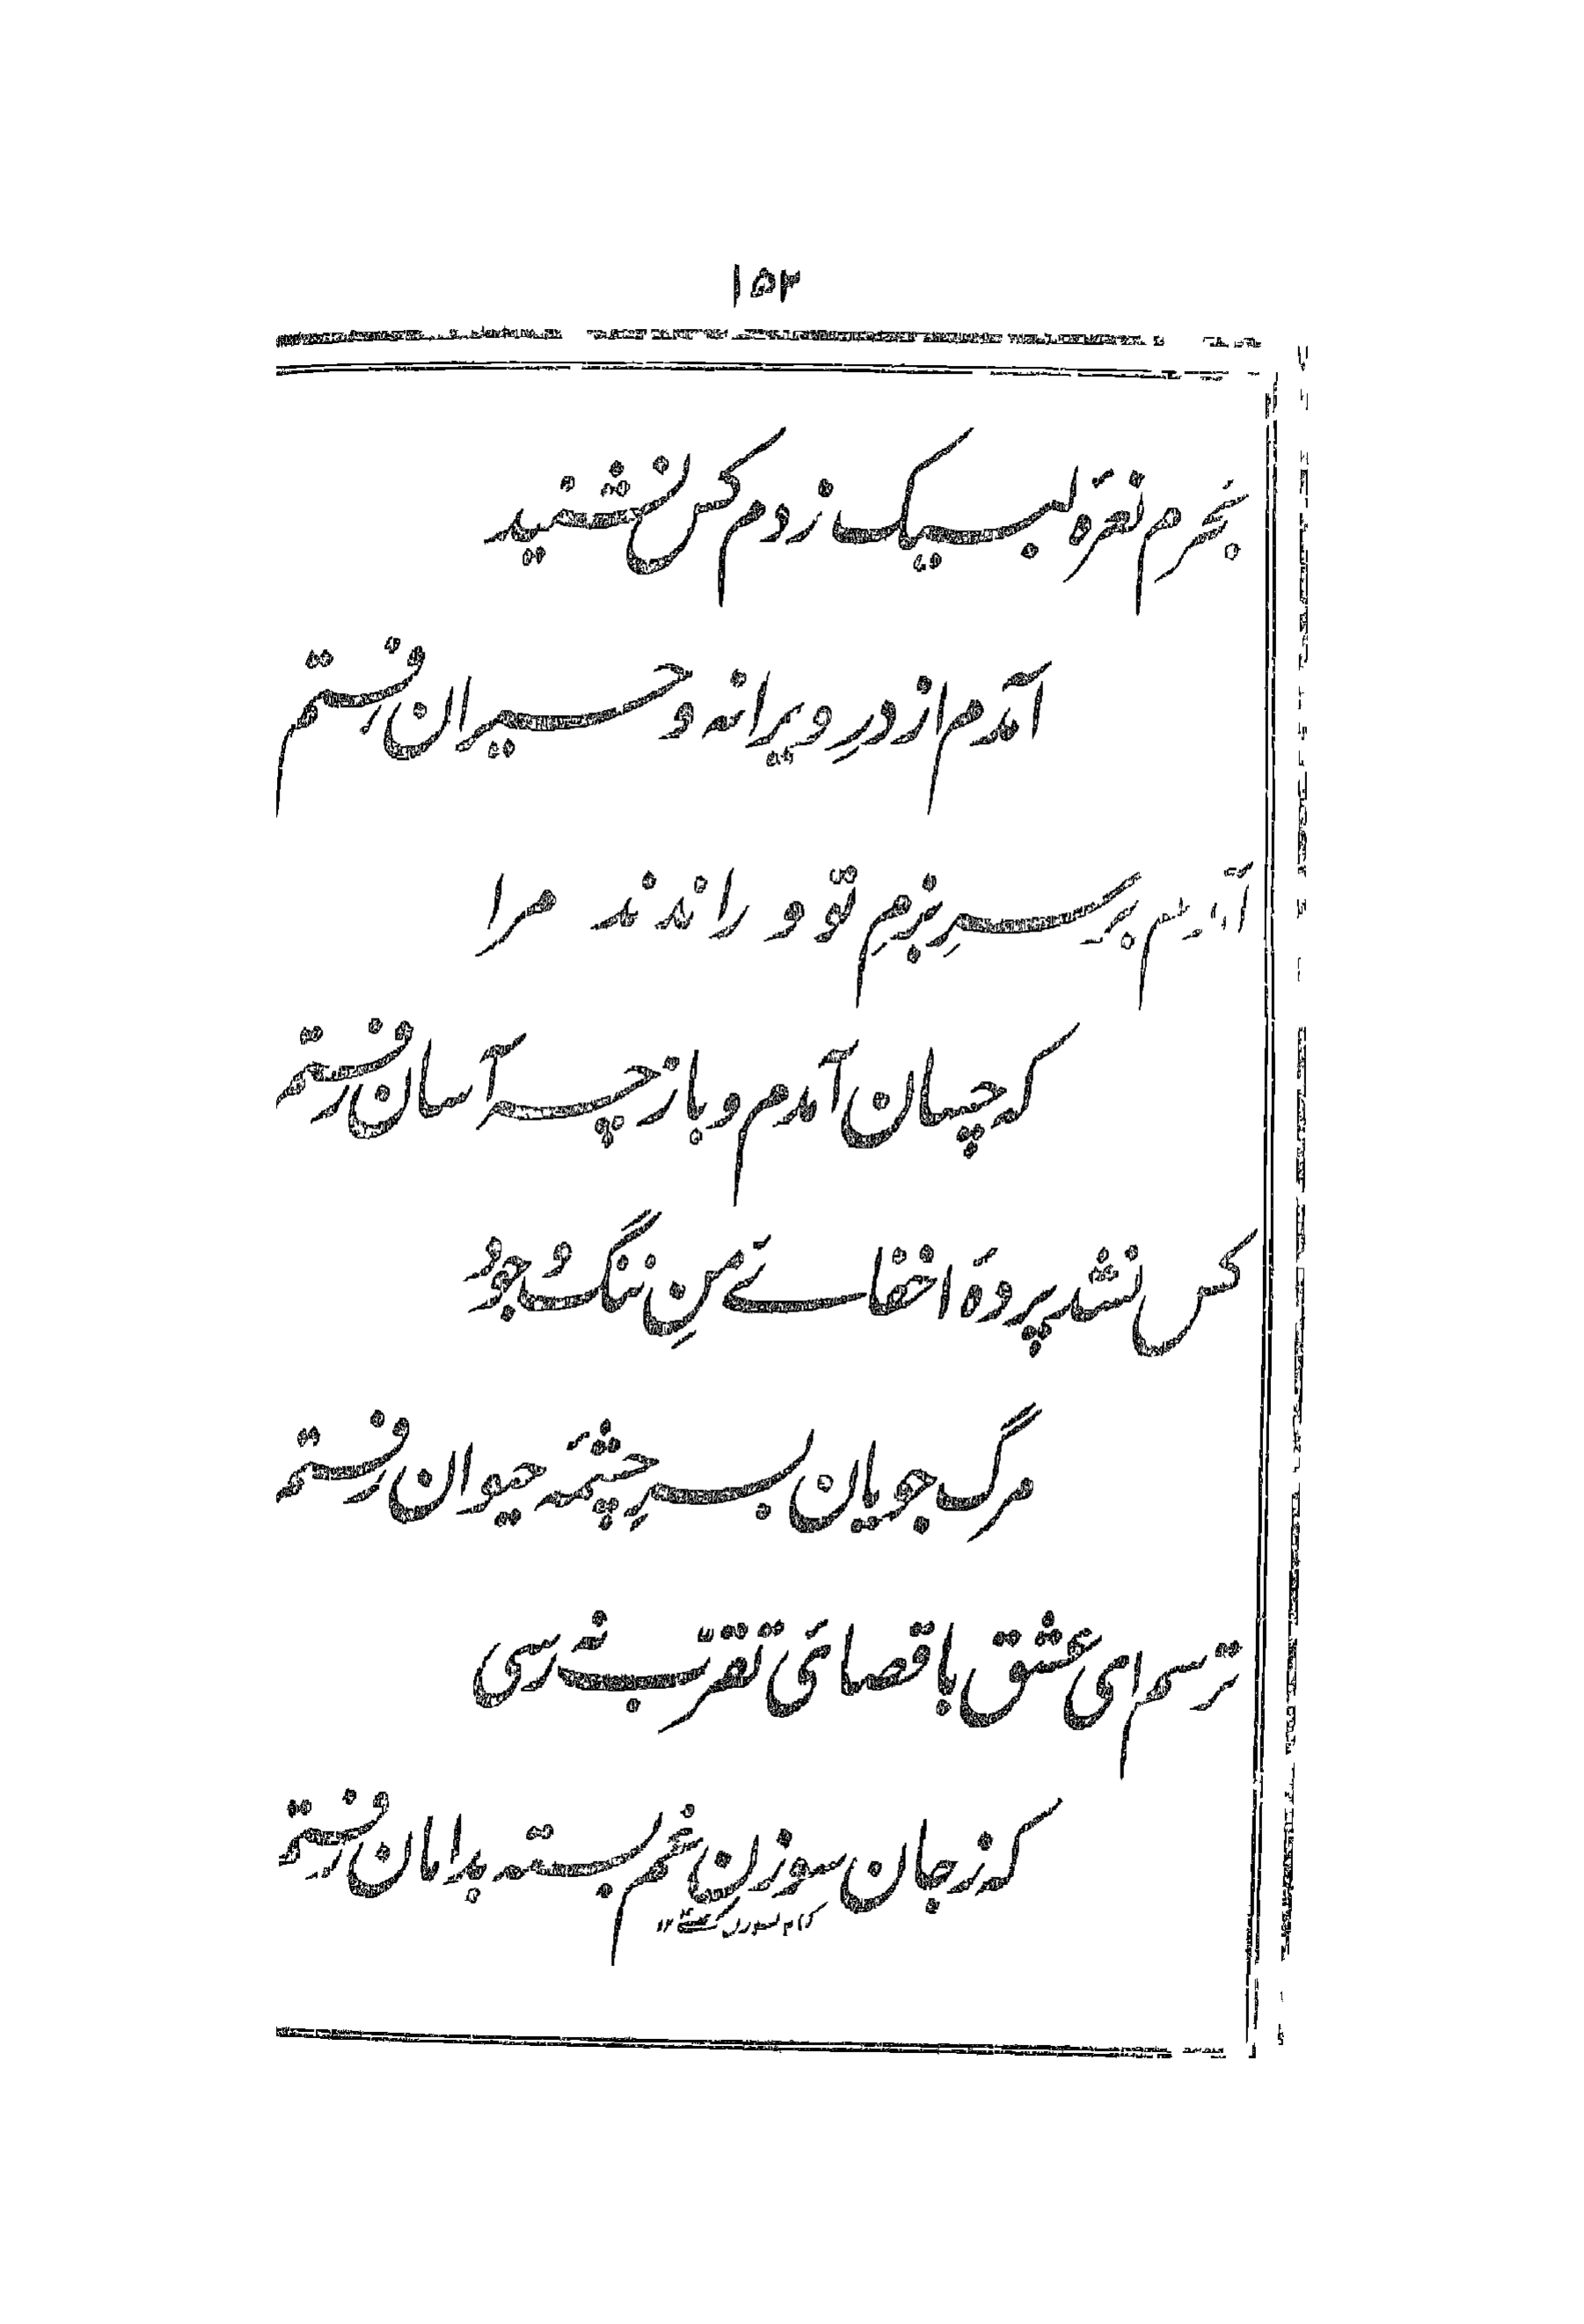 ۱۵۲
بحرم نعرۂ لبیک زدم کس نشنید
آمدم از درِ ویرانه و حیران رفتم
آمدم بر سرِ بزمِ تو و راندند مرا
که چسان آمدم و باز چه آسان رفتم
کس نشد پردۂ اخفائے منِ ننگِ وجود
مرگ جویان بسرِ چشمۂ حیوان رفتم
ترسم ای عشق باقصائی تقرّب نه رسی
که ز جان سوزنِ غم بسته بدامان رفتم